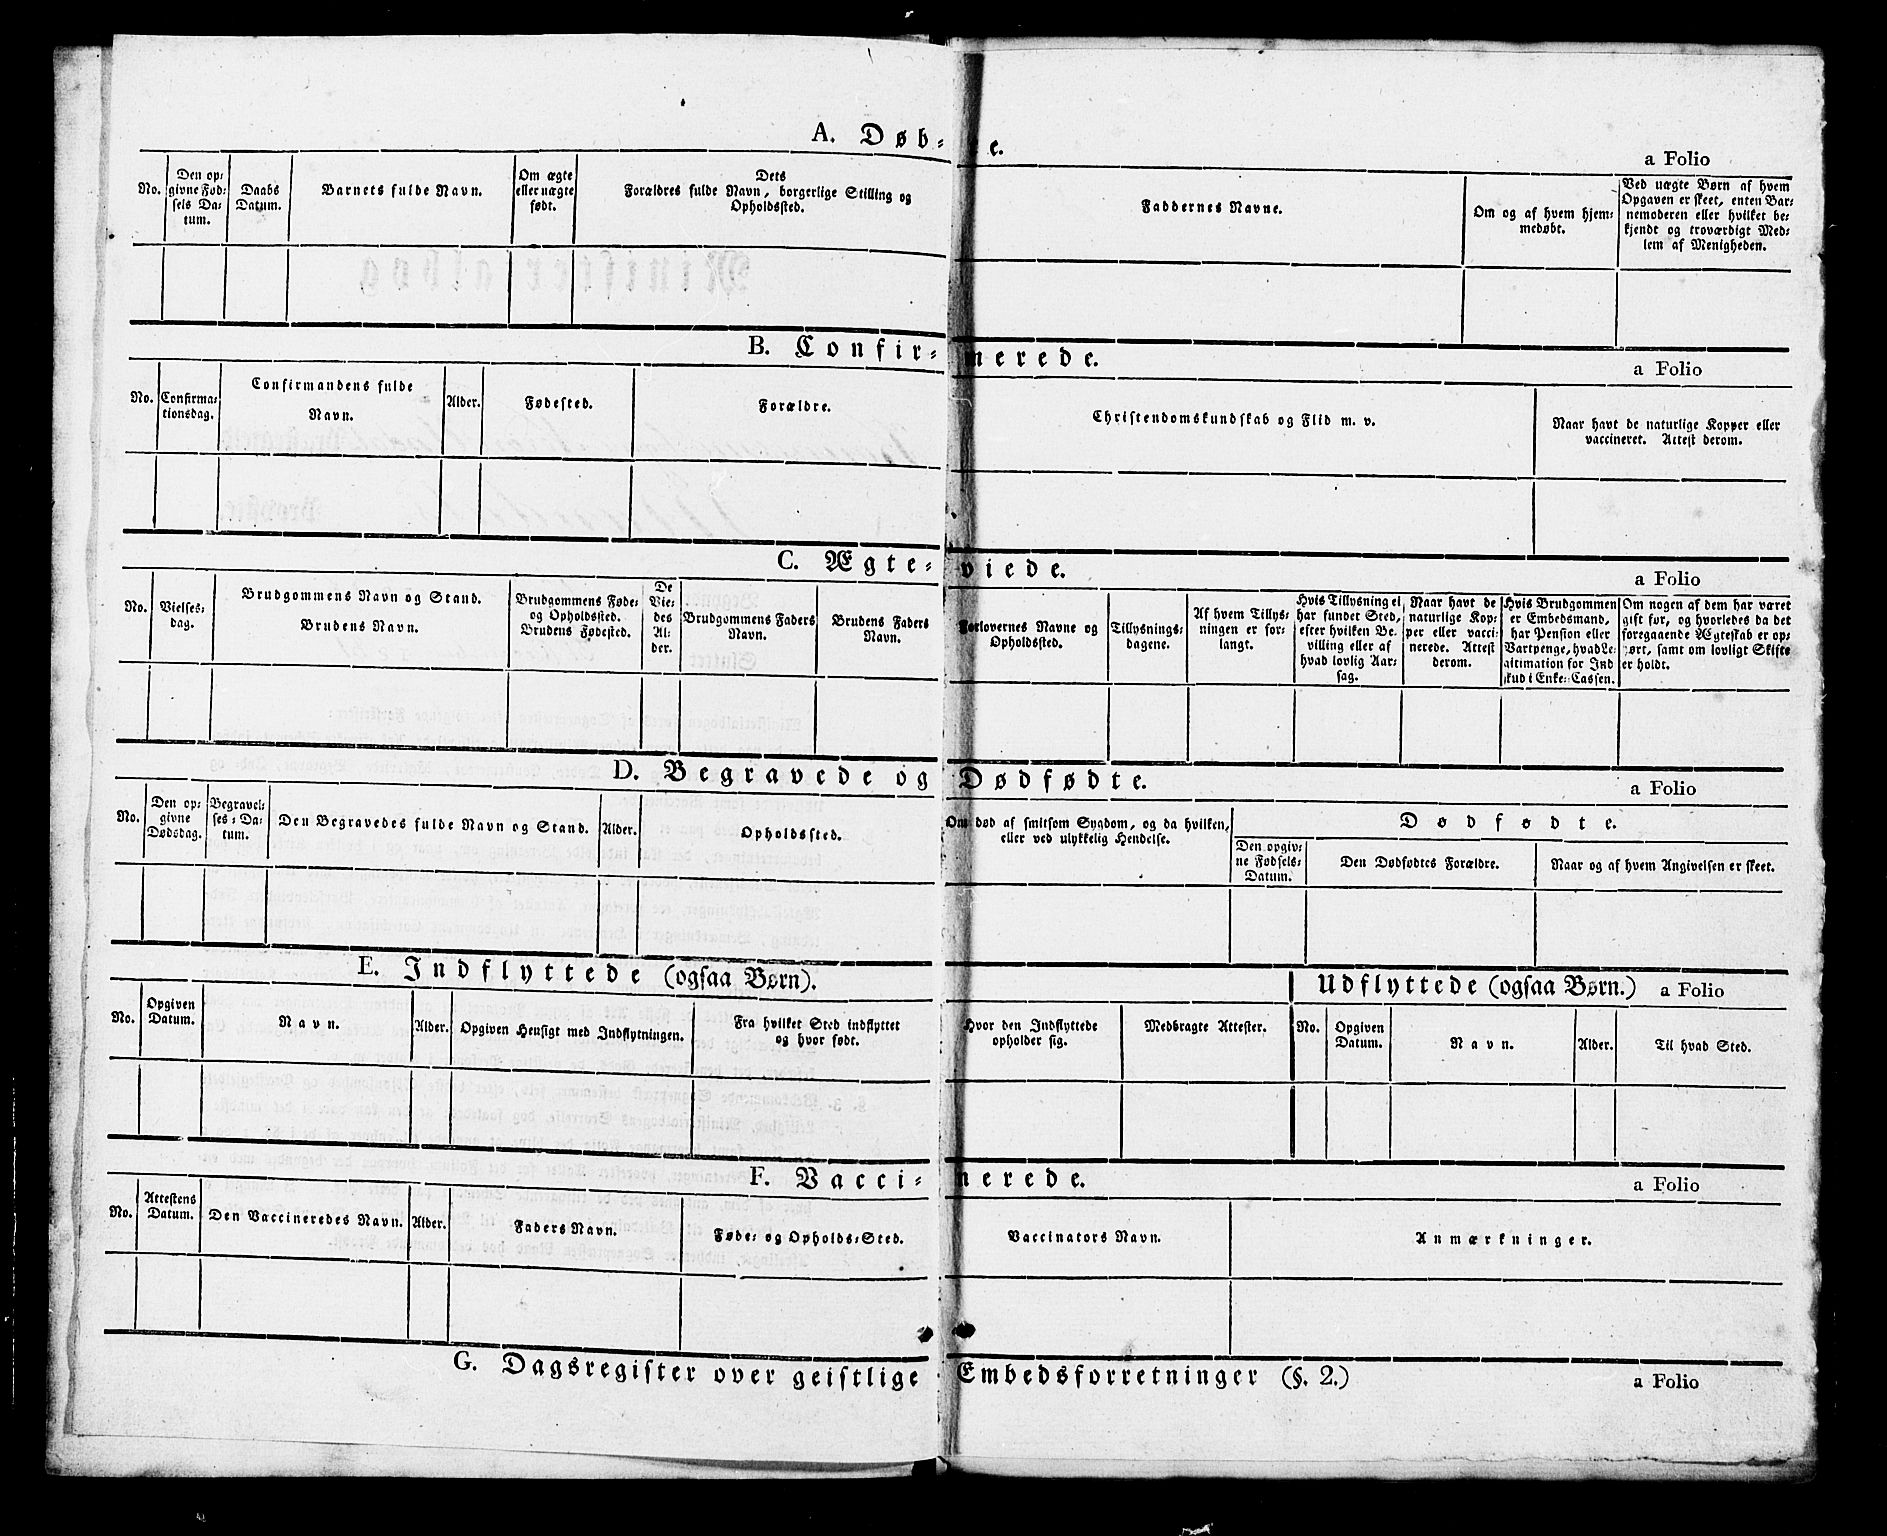 A. Døbte.
a Folio
No.
Den op-
givne Fød-
sels Da-
tum.
Daabs
Datum.
Barnets fulde Navn.
Om ægte
eller uægte
født.
Dets
Forældres fulde Navn, borgerlige Stilling og
Opholdssted.
Faddernes Navne.
Om og af hvem hjem-
medøbt.
Ved uægte Børn af hvem
Opgaven er skeet, enten Bar-
nemoderen eller hvilket be-
kjendt og troværdigt Med-
lem af Menigheden.
B. Confir-merede.
a Folio
No.
Confirma-
tionsdag.
Confirmandens fulde
Navn.
Alder.
Fødested.
Forældre.
Christendomskundskab og Flid m. v.
Naar havt de naturlige Kopper eller
vaccineret. Attest derom.
C. Ægte-viede.
a Folio
No.
Vielses-
dag.
Brudgommens Navn og Stand.
Brudens Navn.
Brudgommens Føde-
og Opholdssted.
Brudens Fødested.
De
Vie-
des
Al-
der.
Brudgommens Faders
Navn.
Brudens Faders
Navn.
Forlovernes Navne og
Opholdssted.
Tillysnings-
dagene.
Af hvem Tillys-
ningen er for-
langt.
Hvis Tillysning ei
har fundet Sted,
efter hvilken Be-
villing eller af
hvad lovlig Aar-
sag.
Naar havt de
naturlige Kop-
per eller vacci-
nerede. Attest
derom.
Hvis Brudgommen
er Embedsmand,
har Pension eller
Vartpenge, hvad Le-
gitimation for Ind
skud i Enke-Cassen.
Om nogen af dem har været
gift før, og hvorledes da det
foregaaende Ægteskab er op-
hørt, samt om lovligt Skifte
er holdt.
D. Begravede og Dødfødte.
a Folio
No.
Den op-
givne
Dødsdag.
Begravel-
ses-Da-
tum.
Den Begravedes fulde Navn og Stand.
Alder.
Opholdssted.
Om død af smitsom Sygdom, og da hvilken,
eller ved ulykkelig Hendelse.
Dødfødte.
Den opgiv-
ne Fødsels-
Datum.
Den Dødfødtes Forældre.
Naar og af hvem Angivelsen er skeet.
E. Indflyttede (ogsaa Børn).
Udflyttede (ogsaa Børn.)
a Folio
No.
Opgiven
Datum.
Navn.
Alder.
Opgiven Hensigt med Indflytningen.
Fra hvilket Sted indflyttet
og hvor født.
Hvor den Indflyttede
opholder sig.
Medbragte Attester.
No.
Opgiven
Datum.
Navn.
Alder.
Til hvad Sted.
F. Vacci-nerede.
a Folio
No.
Attestens
Datum.
Den Vaccineredes Navn.
Alder.
Faders Navn.
Føde- og Opholds-Sted.
Vaccinators Navn.
Anmærkninger.
G. Dagsregister over geistlige Embedsforretninger (§. 2.)
a Folio